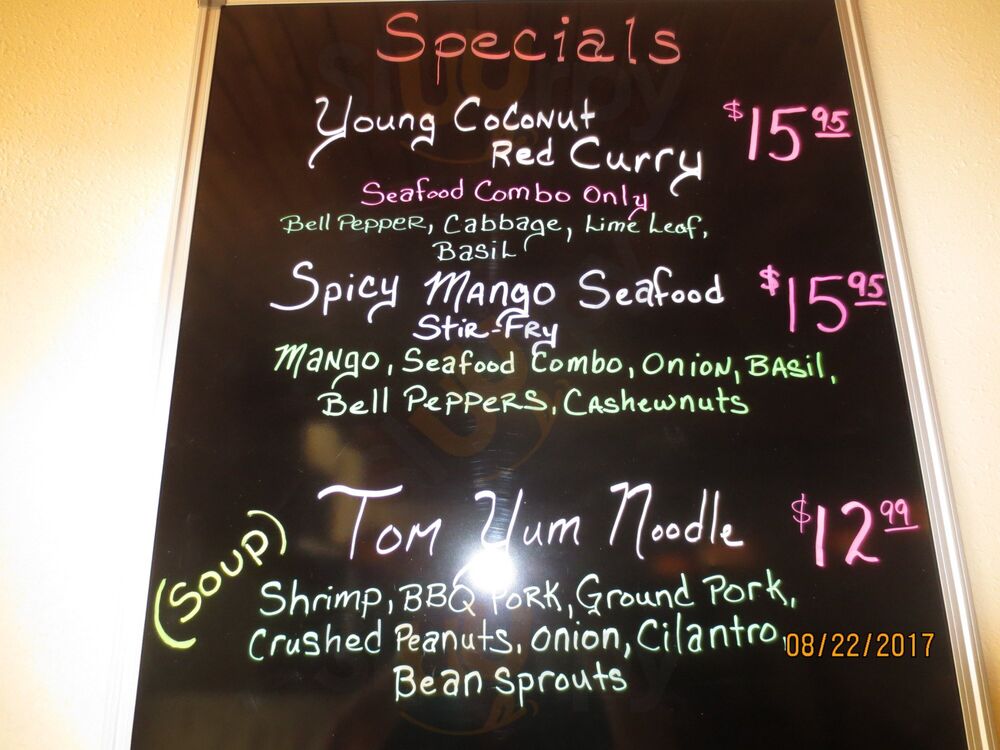 Specials
Young Coconut $15.95
Red Curry
Seafood Combo Only
Bell Pepper, Cabbage, Lime Leaf,
Basil
Spicy Mango Seafood $15.95
Stir-Fry
Mango, Seafood Combo, Onion, Basil,
Bell Peppers, Cashewnuts
Tom Yum Noodle $12.99
(Soup)
Shrimp, BBQ Pork, Ground Pork,
Crushed Peanuts, Onion, Cilantro,
Bean Sprouts
08/22/2017